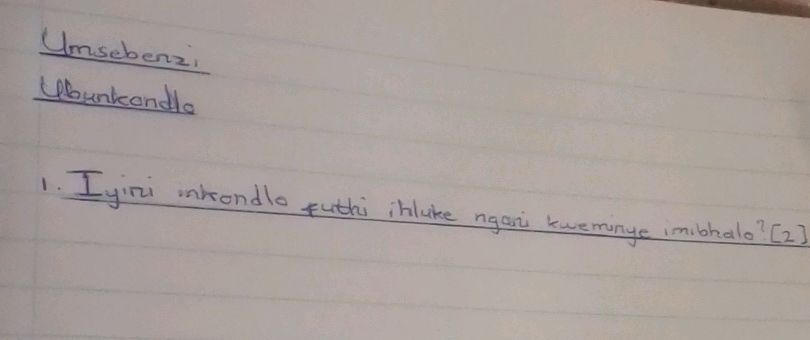 Umsebenzi
Ubunkondlo
1. Iyini inkondlo futhi ihluke ngani kweminye imibhalo? [2]